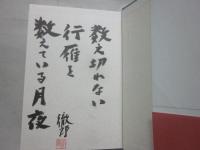 数え切れない
行雁を
数えている月夜